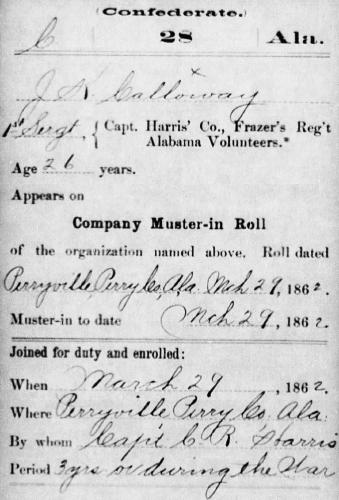 (Confederate.)
C 28 Ala.
J K. Calloway
1st Sergt, { Capt. Harris' Co., Frazer's Reg't
Alabama Volunteers.*
Age 26 years.
Appears on
Company Muster-in Roll
of the organization named above. Roll dated
Perryville, Perry Co, Ala. Mch 29, 1862.
Muster-in to date Mch 29, 1862.
Joined for duty and enrolled:
When March 29, 1862.
Where Perryville Perry Co, Ala.
By whom Capt C. R. Harris
Period 3 yrs or during the War